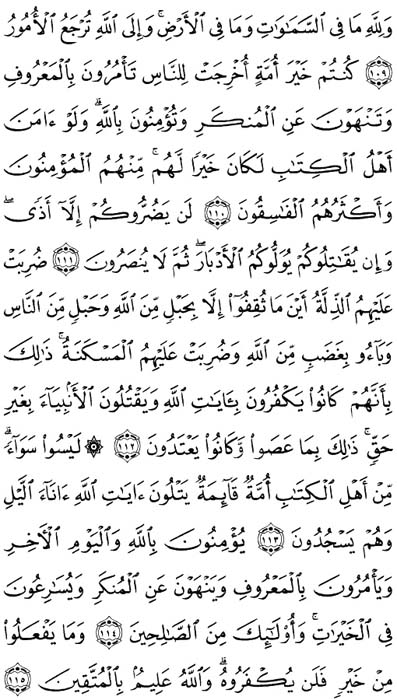 وَلِلَّهِ مَا فِي السَّمَاوَاتِ وَمَا فِي الْأَرْضِ ۚ وَإِلَى اللَّهِ تُرْجَعُ الْأُمُورُ
﴿١٠٩﴾ كُنتُمْ خَيْرَ أُمَّةٍ أُخْرِجَتْ لِلنَّاسِ تَأْمُرُونَ بِالْمَعْرُوفِ
وَتَنْهَوْنَ عَنِ الْمُنكَرِ وَتُؤْمِنُونَ بِاللَّهِ ۗ وَلَوْ ءَامَنَ
أَهْلُ الْكِتَابِ لَكَانَ خَيْرًا لَّهُم ۚ مِّنْهُمُ الْمُؤْمِنُونَ
وَأَكْثَرُهُمُ الْفَاسِقُونَ ﴿١١٠﴾ لَن يَضُرُّوكُمْ إِلَّا أَذًى ۖ
وَإِن يُقَاتِلُوكُمْ يُوَلُّوكُمُ الْأَدْبَارَ ۖ ثُمَّ لَا يُنصَرُونَ ﴿١١١﴾ ضُرِبَتْ
عَلَيْهِمُ الذِّلَّةُ أَيْنَ مَا ثُقِفُوا إِلَّا بِحَبْلٍ مِّنَ اللَّهِ وَحَبْلٍ مِّنَ النَّاسِ
وَبَاءُو بِغَضَبٍ مِّنَ اللَّهِ وَضُرِبَتْ عَلَيْهِمُ الْمَسْكَنَةُ ۚ ذَٰلِكَ
بِأَنَّهُمْ كَانُوا يَكْفُرُونَ بِـَٔايَاتِ اللَّهِ وَيَقْتُلُونَ الْأَنۢبِيَاءَ بِغَيْرِ
حَقٍّ ۚ ذَٰلِكَ بِمَا عَصَوا وَّكَانُوا يَعْتَدُونَ ﴿١١٢﴾ ۞ لَيْسُوا سَوَاءً ۗ
مِّنْ أَهْلِ الْكِتَابِ أُمَّةٌ قَائِمَةٌ يَتْلُونَ ءَايَاتِ اللَّهِ ءَانَاءَ اللَّيْلِ
وَهُمْ يَسْجُدُونَ ﴿١١٣﴾ يُؤْمِنُونَ بِاللَّهِ وَالْيَوْمِ الْآخِرِ
وَيَأْمُرُونَ بِالْمَعْرُوفِ وَيَنْهَوْنَ عَنِ الْمُنكَرِ وَيُسَارِعُونَ
فِي الْخَيْرَاتِ ۚ وَأُولَٰئِكَ مِنَ الصَّالِحِينَ ﴿١١٤﴾ وَمَا يَفْعَلُوا
مِنْ خَيْرٍ فَلَن يُكْفَرُوهُ ۗ وَاللَّهُ عَلِيمٌۢ بِالْمُتَّقِينَ ﴿١١٥﴾